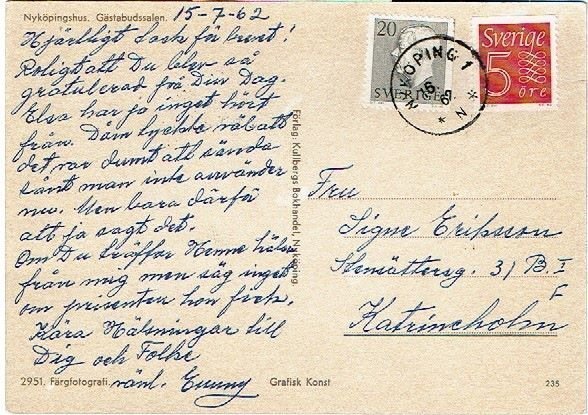 Nyköpingshus. Gästabudssalen.
15-7-62
Hjärtligt tack för brevet!
Roligt att Du blev så
gratulerad på Din Dag.
Elsa har ja inget hört
från. Dom tyckte väl att
det var dumt att sända
sånt man inte använder
nu. Men bara därför
att ja sagt det.
Om Du träffar Henne hälsa
från mig men säg inget
om presenten hon fick.
Kära Hälsningar till
Dig och Folke
vänl. Gunny
2951. Färgfotografi.
Grafisk Konst
235
Förlag: Kullbergs Bokhandel, Nyköping
20
SVERIGE
Sverige
5
ÖRE
NYKÖPING 1
Fru
Signe Eriksson
31 B. I
Katrineholm